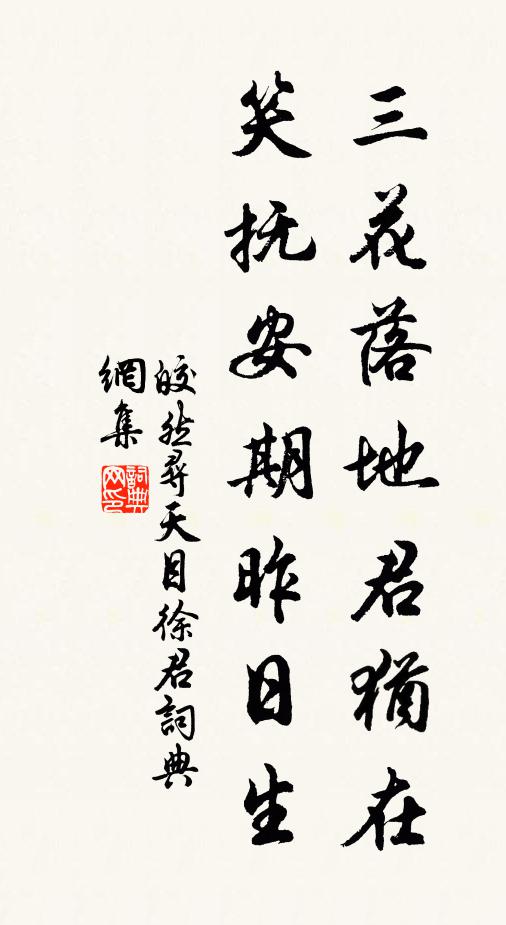 三花落地君猶在
笑抚安期昨日生
皎然尋天目徐君詞典
網集
詞典網印